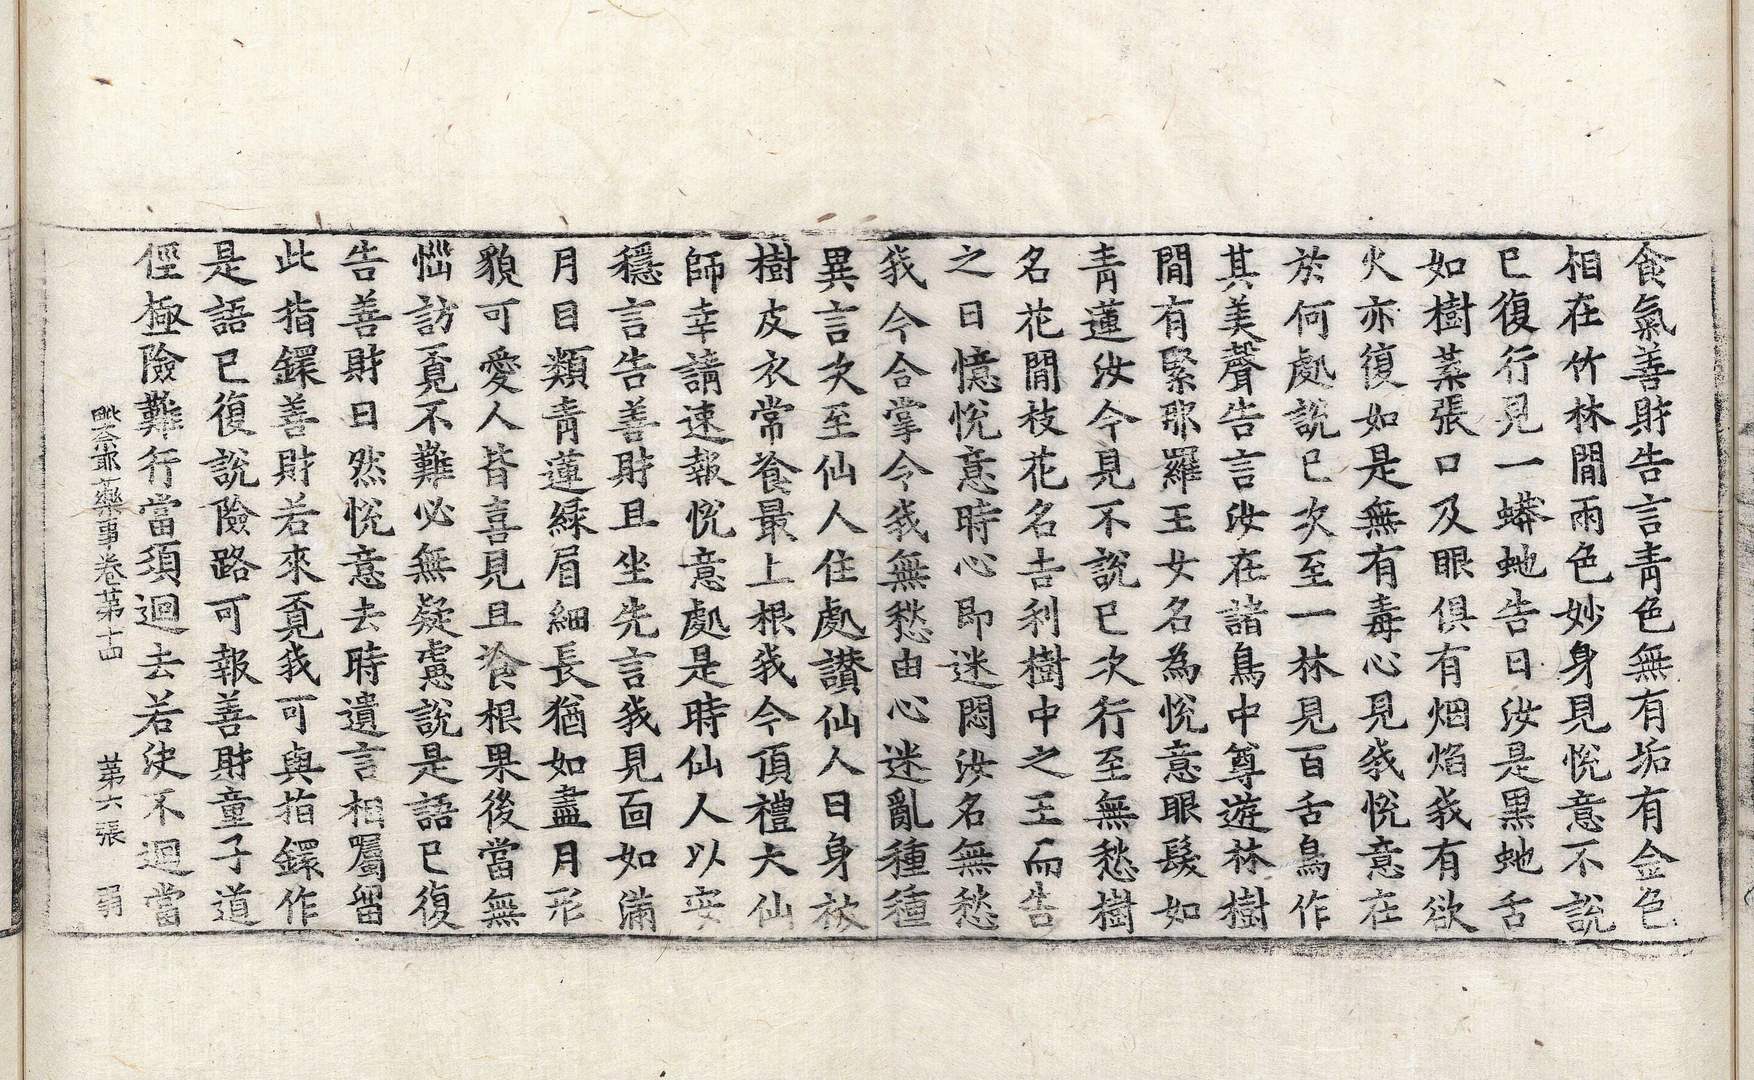 食氣善財告言青色無有垢有金色
相在竹林閒雨色妙身見悅意不說
已復行見一蟒虵告曰汝是黑虵舌
如樹葉張口及眼俱有烟焰我有欲
火亦復如是無有毒心見我悅意在
於何處說已次至一林見百舌鳥作
其美聲告言汝在諸鳥中尊遊林樹
閒有緊那羅王女名為悅意眼髮如
青蓮汝今見不說已次行至無愁樹
名花閒枝花名吉利樹中之王而告
之曰憶悅意時心即迷悶汝名無愁
我今合掌令我無愁由心迷亂種種
異言次至仙人住處讚仙人曰身被
樹皮衣常飡最上根我今頂禮大仙
師幸請速報悅意處是時仙人以安
穩言告善財且坐先言我見面如滿
月目類青蓮綠眉細長猶如畫月形
貌可愛人皆喜見且飡根果後當無
惱訪覔不難必無疑慮說是語已復
告善財曰然悅意去時遺言相囑留
此指鐶善財若來覔我可與指鐶作
是語已復說險路可報善財童子道
徑極險難行當須迴去若決不迴當
毗奈耶藥事卷第十四 第六張 弱